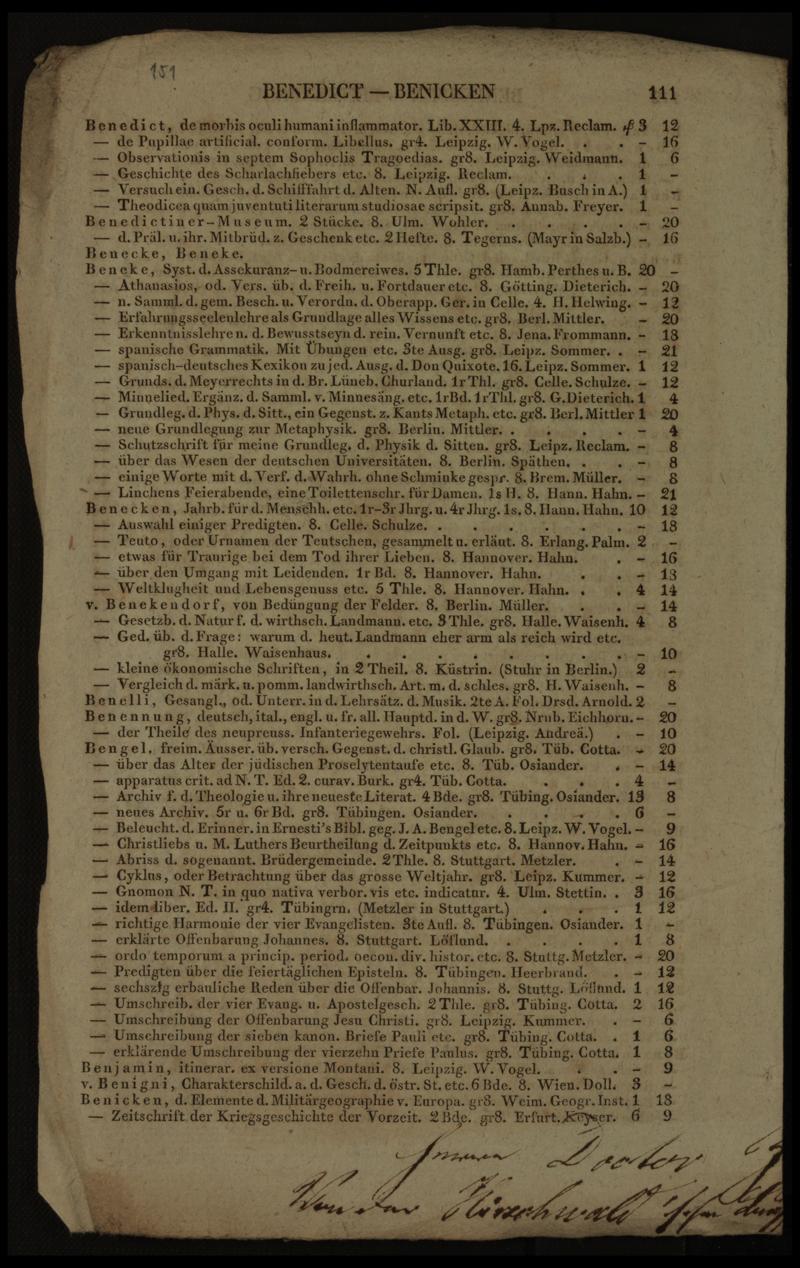 151
BENEDICT — BENICKEN 111
Benedict, de morbis oculi humani inflammator. Lib. XXIII. 4. Lpz. Reclam. 3 12
— de Pupillae artificial. conform. Libellus. gr4. Leipzig. W. Vogel. . . - 16
— Observationis in septem Sophoclis Tragoedias. gr8. Leipzig. Weidmann. 1 6
— Geschichte des Scharlachfiebers etc. 8. Leipzig. Reclam. . . . 1 -
— Versuch ein. Gesch. d. Schifffahrt d. Alten. N. Aufl. gr8. (Leipz. Busch in A.) 1 -
— Theodicea quam juventuti literarum studiosae scripsit. gr8. Annab. Freyer. 1 -
Benedictiner-Museum. 2 Stücke. 8. Ulm. Wohler. . . . . - 20
— d. Präl. u. ihr. Mitbrüd. z. Geschenk etc. 2 Hefte. 8. Tegerns. (Mayr in Salzb.) - 16
Benecke, Beneke.
Beneke, Syst. d. Assekuranz- u. Bodmereiwes. 5 Thle. gr8. Hamb. Perthes u. B. 20 -
— Athanasios, od. Vers. üb. d. Freih. u. Fortdauer etc. 8. Götting. Dieterich. - 20
— n. Samml. d. gem. Besch. u. Verordn. d. Oberapp. Ger. in Celle. 4. H. Helwing. - 12
— Erfahrungsseelenlehre als Grundlage alles Wissens etc. gr8. Berl. Mittler. - 20
— Erkenntnisslehre n. d. Bewusstseyn d. rein. Vernunft etc. 8. Jena. Frommann. - 18
— spanische Grammatik. Mit Übungen etc. 3te Ausg. gr8. Leipz. Sommer. . - 21
— spanisch-deutsches Kexikon zu jed. Ausg. d. Don Quixote. 16. Leipz. Sommer. 1 12
— Grunds. d. Meyerrechts in d. Br. Lüneb. Churland. 1r Thl. gr8. Celle. Schulze. - 12
— Minnelied. Ergänz. d. Samml. v. Minnesäng. etc. 1r Bd. 1r Thl. gr8. G. Dieterich. 1 4
— Grundleg. d. Phys. d. Sitt., ein Gegenst. z. Kants Metaph. etc. gr8. Berl. Mittler 1 20
— neue Grundlegung zur Metaphysik. gr8. Berlin. Mittler. . . . . - 4
— Schutzschrift für meine Grundleg. d. Physik d. Sitten. gr8. Leipz. Reclam. - 8
— über das Wesen der deutschen Universitäten. 8. Berlin. Späthen. . . - 8
— einige Worte mit d. Verf. d. Wahrh. ohne Schminke gespr. 8. Brem. Müller. - 8
— Linchens Feierabende, eine Toilettenschr. für Damen. 1s H. 8. Hann. Hahn. - 21
Benecken, Jahrb. für d. Menschh. etc. 1r-3r Jhrg. u. 4r Jhrg. 1s. 8. Hann. Hahn. 10 12
— Auswahl einiger Predigten. 8. Celle. Schulze. . . . . . . - 18
— Teuto, oder Urnamen der Teutschen, gesammelt u. erläut. 8. Erlang. Palm. 2 -
— etwas für Traurige bei dem Tod ihrer Lieben. 8. Hannover. Hahn. . - 16
— über den Umgang mit Leidenden. 1r Bd. 8. Hannover. Hahn. . . - 18
— Weltklugheit und Lebensgenuss etc. 5 Thle. 8. Hannover. Hahn. . . 4 14
v. Benekendorf, von Bedüngung der Felder. 8. Berlin. Müller. . . - 14
— Gesetzb. d. Natur f. d. wirthsch. Landmann. etc. 3 Thle. gr8. Halle. Waisenh. 4 8
— Ged. üb. d. Frage: warum d. heut. Landmann eher arm als reich wird etc.
gr8. Halle. Waisenhaus. . . . . . . . . - 10
— kleine ökonomische Schriften, in 2 Theil. 8. Küstrin. (Stuhr in Berlin.) 2 -
— Vergleich d. märk. u. pomm. landwirthsch. Art. m. d. schles. gr8. H. Waisenh. - 8
Benelli, Gesangl., od. Unterr. in d. Lehrsätz. d. Musik. 2te A. Fol. Drsd. Arnold. 2 -
Benennung, deutsch, ital., engl. u. fr. all. Hauptd. in d. W. gr8. Nrnb. Eichhorn. - 20
— der Theile des neupreuss. Infanteriegewehrs. Fol. (Leipzig. Andreä.) . - 10
Bengel, freim. Äusser. üb. versch. Gegenst. d. christl. Glaub. gr8. Tüb. Cotta. - 20
— über das Alter der jüdischen Proselytentaufe etc. 8. Tüb. Osiander. . - 14
— apparatus crit. ad N. T. Ed. 2. curav. Burk. gr4. Tüb. Cotta. . . . 4 -
— Archiv f. d. Theologie u. ihre neueste Literat. 4 Bde. gr8. Tübing. Osiander. 13 8
— neues Archiv. 5r u. 6r Bd. gr8. Tübingen. Osiander. . . . . 6 -
— Beleucht. d. Erinner. in Ernesti's Bibl. geg. J. A. Bengel etc. 8. Leipz. W. Vogel. - 9
— Christliebs u. M. Luthers Beurtheilung d. Zeitpunkts etc. 8. Hannov. Hahn. - 16
— Abriss d. sogenannt. Brüdergemeinde. 2 Thle. 8. Stuttgart. Metzler. . - 14
— Cyklus, oder Betrachtung über das grosse Weltjahr. gr8. Leipz. Kummer. - 12
— Gnomon N. T. in quo nativa verbor. vis etc. indicatur. 4. Ulm. Stettin. . 3 16
— idem liber. Ed. II. gr4. Tübingrn. (Metzler in Stuttgart.) . . . 1 12
— richtige Harmonie der vier Evangelisten. 3te Aufl. 8. Tübingen. Osiander. 1 -
— erklärte Offenbarung Johannes. 8. Stuttgart. Löflund. . . . . 1 8
— ordo temporum a princip. period. oecon. div. histor. etc. 8. Stuttg. Metzler. - 20
— Predigten über die feiertäglichen Episteln. 8. Tübingen. Heerbrand. . - 12
— sechszig erbauliche Reden über die Offenbar. Johannis. 8. Stuttg. Löflund. 1 12
— Umschreib. der vier Evang. u. Apostelgesch. 2 Thle. gr8. Tübing. Cotta. 2 16
— Umschreibung der Offenbarung Jesu Christi. gr8. Leipzig. Kummer. . - 6
— Umschreibung der sieben kanon. Briefe Pauli etc. gr8. Tübing. Cotta. . 1 6
— erklärende Umschreibung der vierzehn Priefe Paulus. gr8. Tübing. Cotta. 1 8
Benjamin, itinerar. ex versione Montani. 8. Leipzig. W. Vogel. . . - 9
v. Benigni, Charakterschild. a. d. Gesch. d. östr. St. etc. 6 Bde. 8. Wien. Doll. 3 -
Benicken, d. Elemente d. Militärgeographie v. Europa. gr8. Weim. Geogr. Inst. 1 18
— Zeitschrift der Kriegsgeschichte der Vorzeit. 2 Bde. gr8. Erfurt. Keyser. 6 9
Doctor
Von der Hirschwald